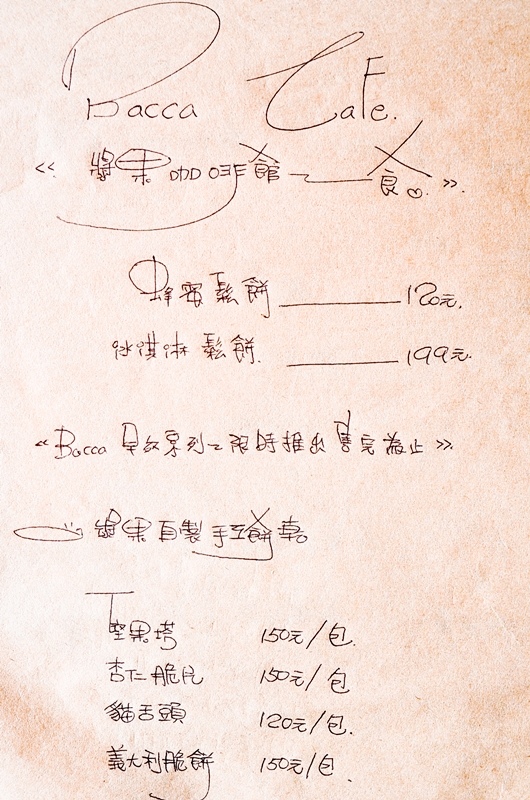 Bacca Cafe.
«漿果咖啡館——食».
蜂蜜鬆餅——120元.
冰淇淋鬆餅.——199元.
«Bacca 早午系列~限時推出 售完為止»
漿果自製手工餅乾
堅果塔 150元/包.
杏仁脆片 150元/包
貓舌頭 120元/包.
義大利脆餅 150元/包.